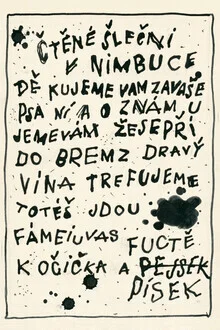 ČTĚNÉ ŠLEČNI
V NIMBUCE
DĚ KUJEME VAM ZAVAŠE
PSA NÍ A O ZNÁM U
JEMEVÁM ŽE JE PŘI
DO BREM Z DRAVÝ
VÍNA TREFUJEME
TOTÉŠ JDOU
FÁMEIUVAS
FUCTĚ
KOČIČKA A PEJSEK
PÍSEK